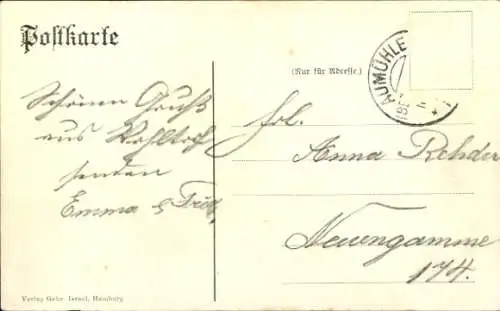 Postkarte
(Nur für Adresse.)
AUMÜHLE
Schönen Gruß
aus Wohltorf
senden
Emma &
Frl.
Anna Rehder
Neuengamme
174.
Verlag Gebr. Israel, Hamburg